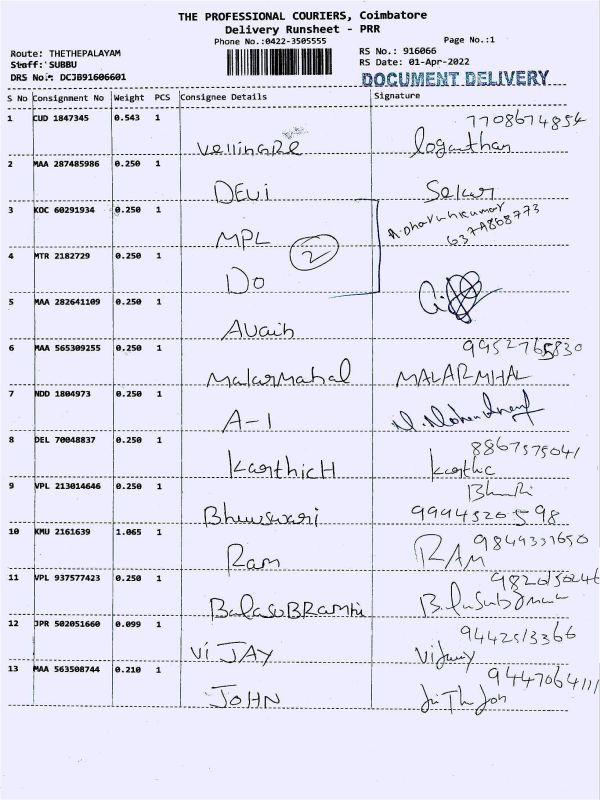 THE PROFESSIONAL COURIERS, Coimbatore
Delivery Runsheet - PRR
Phone No.:0422-3505555
Page No.:1
Route: THETHEPALAYAM
RS No.: 916066
Staff: SUBBU
RS Date: 01-Apr-2022
DRS No.: DCJB91606601
DOCUMENT DELIVERY
S No Consignment No Weight PCS Consignee Details Signature
1 CUD 1847345 0.543 1 7708674854
loganthan
2 MAA 287485986 0.250 1
DEVI Sekar
3 KOC 60291934 0.250 1
MPL 2
4 MTR 2182729 0.250 1
DO
5 MAA 282641109 0.250 1
6 MAA 565309255 0.250 1
MalarMahal MALARMHAL
7 NDD 1804973 0.250 1
A-1
8 DEL 70048837 0.250 1 8867575041
KarthicH Karthic
9 VPL 213014646 0.250 1
Bhuvswari 9994520598
10 KMU 2161639 1.065 1 9849331650
Ram RAM
11 VPL 937577423 0.250 1
12 JPR 502051660 0.099 1 9442513366
ViJAY Vijay
13 MAA 563508744 0.210 1 9447064111
JOHN